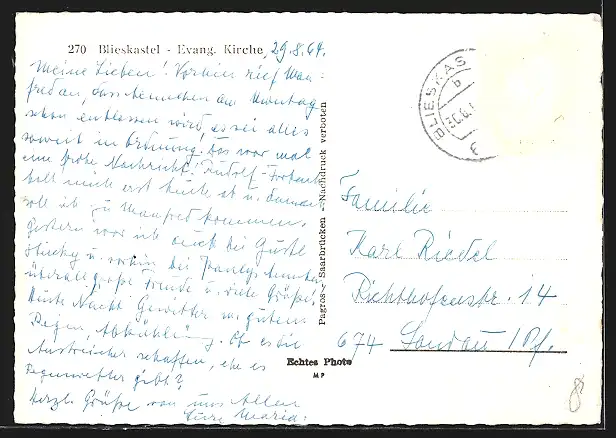 270 Blieskastel - Evang. Kirche
29.8.64.
Meine Lieben! Vorhin rief Man-
fred an, dass Hennchen am Montag
schon entlassen wird, es sei alles
soweit in Ordnung. Das war mal
eine frohe Nachricht! Rudolf
will
soll ich zu Manfred kommen.
Gestern war ich auch bei Gustl
u. vorhin bei
überall große Freude u. viele Grüße!
Nacht Gewitter m. gutem
Regen, Abkühlung. Ob es die
Austräucher schaffen, ehe es
Regenwetter gibt?
Herzl. Grüße von uns Allen
Eure Maria.
Pagros - Saarbrücken - Nachdruck verboten
Echtes Photo
MP
BLIESKAS
b
30.8.
Familie
Karl Riedel
Richthofenstr. 14
674 Landau / Pf.